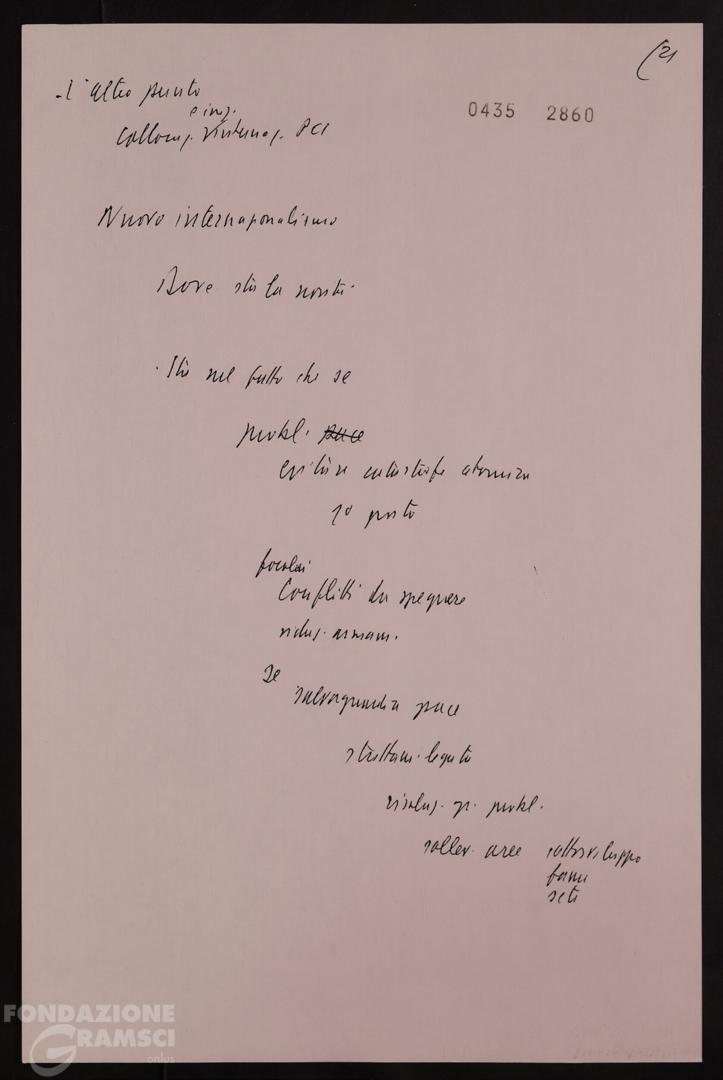 (21
0435 2860
- L'altro punto
e iniz.
Collocaz. internaz. PCI
Nuovo internazionalismo
Dove sta la novità
. Sta nel fatto che se
probl. pace
evitare catastrofe atomica
1º posto
focolai
Conflitti da spegnere
riduz. armam.
Se
salvaguardia pace
strettam. legata
risoluz. gr. probl.
sollev. aree sottosviluppo
fame
sete
FONDAZIONE
GRAMSCI
onlus